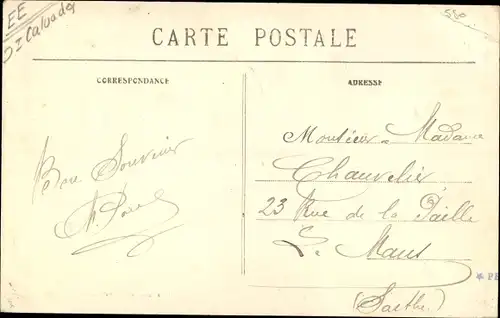 EE
Calvados
550
CARTE POSTALE
CORRESPONDANCE
ADRESSE
Bon Souvenir
Monsieur Madame
Chauvelier
23 Rue de la Paille
Le Mans
(Sarthe)
* PE